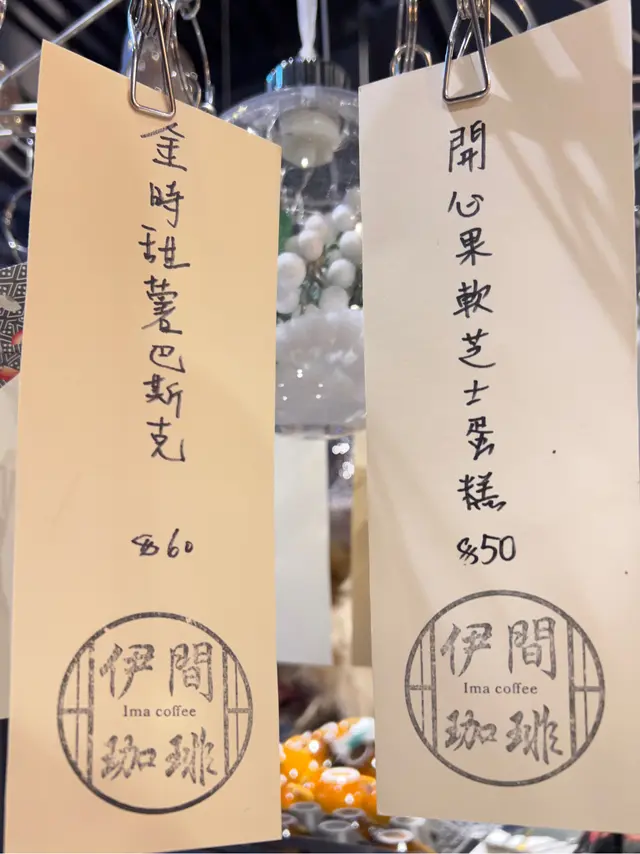 金時甜薯巴斯克
$60
伊間
Ima coffee
珈琲
開心果軟芝士蛋糕
$50
伊間
Ima coffee
珈琲